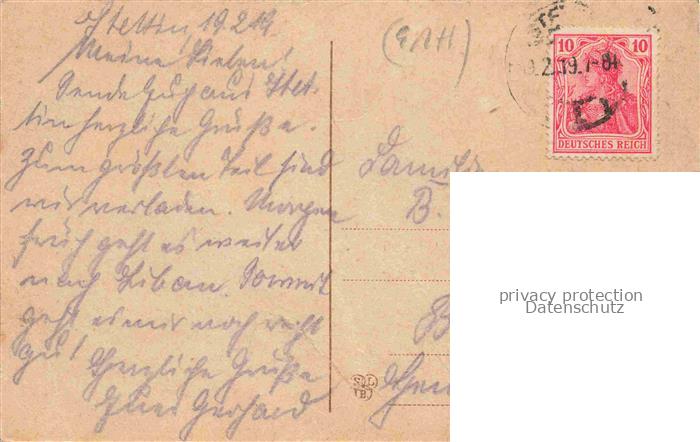 Stettin, 19.2.19.
Meine Lieben!
Sende Euch aus Stet-
tin herzliche Grüße.
Zum größten Teil sind
wir verladen. Morgen
früh geht es weiter
nach Libau. Soweit
geht es mir noch recht
gut!
Herzliche Grüße
Euer Gerhard
Familie
B.
10 10
DEUTSCHES REICH
S L
B
privacy protection
Datenschutz